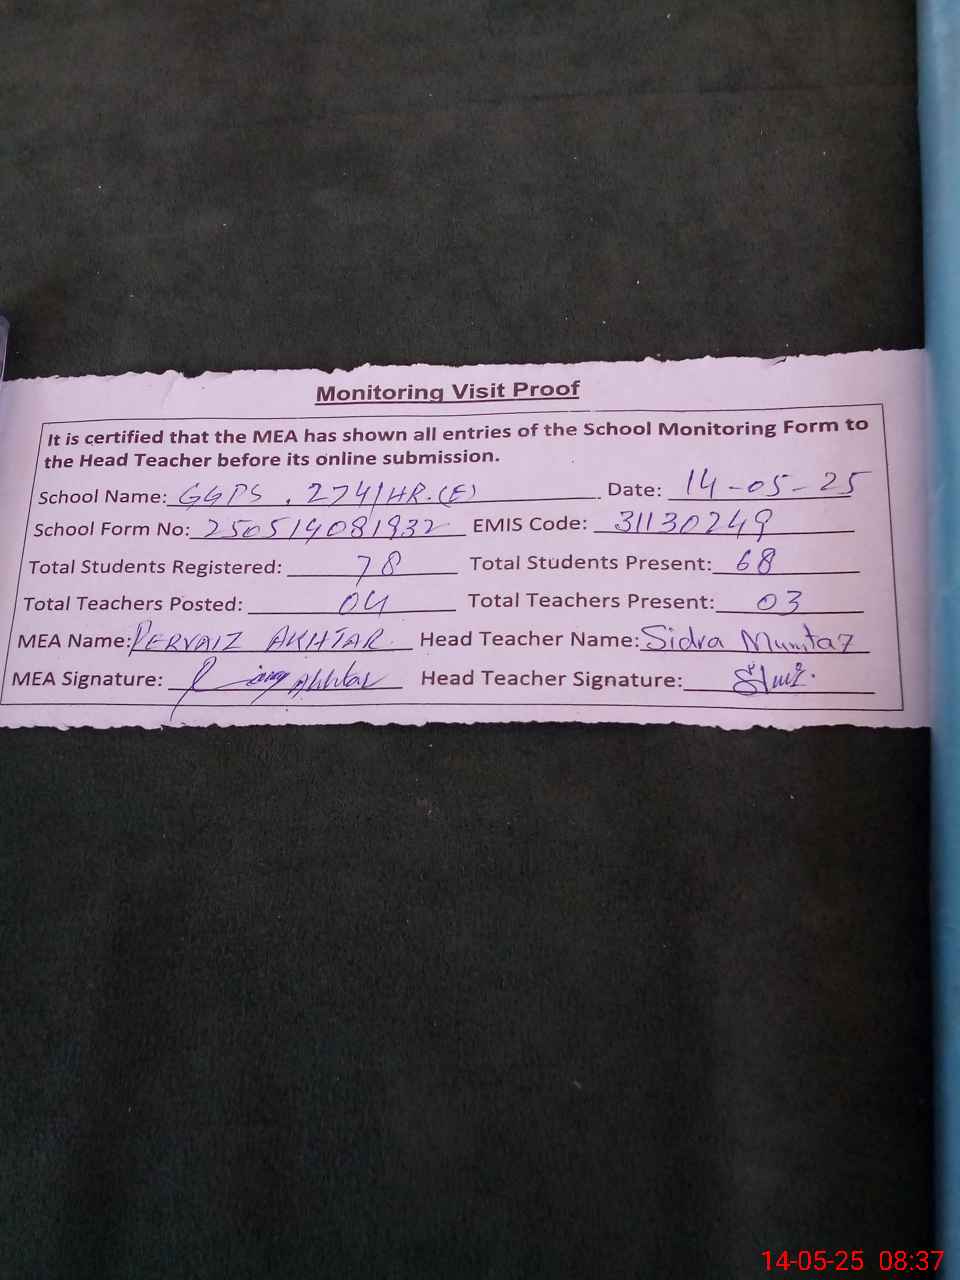 Monitoring Visit Proof
It is certified that the MEA has shown all entries of the School Monitoring Form to
the Head Teacher before its online submission.
School Name: GGPS . 274/HR.(E) Date: 14-05-25
School Form No: 250514081932 EMIS Code: 31130249
Total Students Registered: 78 Total Students Present: 68
Total Teachers Posted: 04 Total Teachers Present: 03
MEA Name: PERVAIZ AKHTAR. Head Teacher Name: Sidra Mumtaz
MEA Signature: Akhtar Head Teacher Signature:
14-05-25 08:37